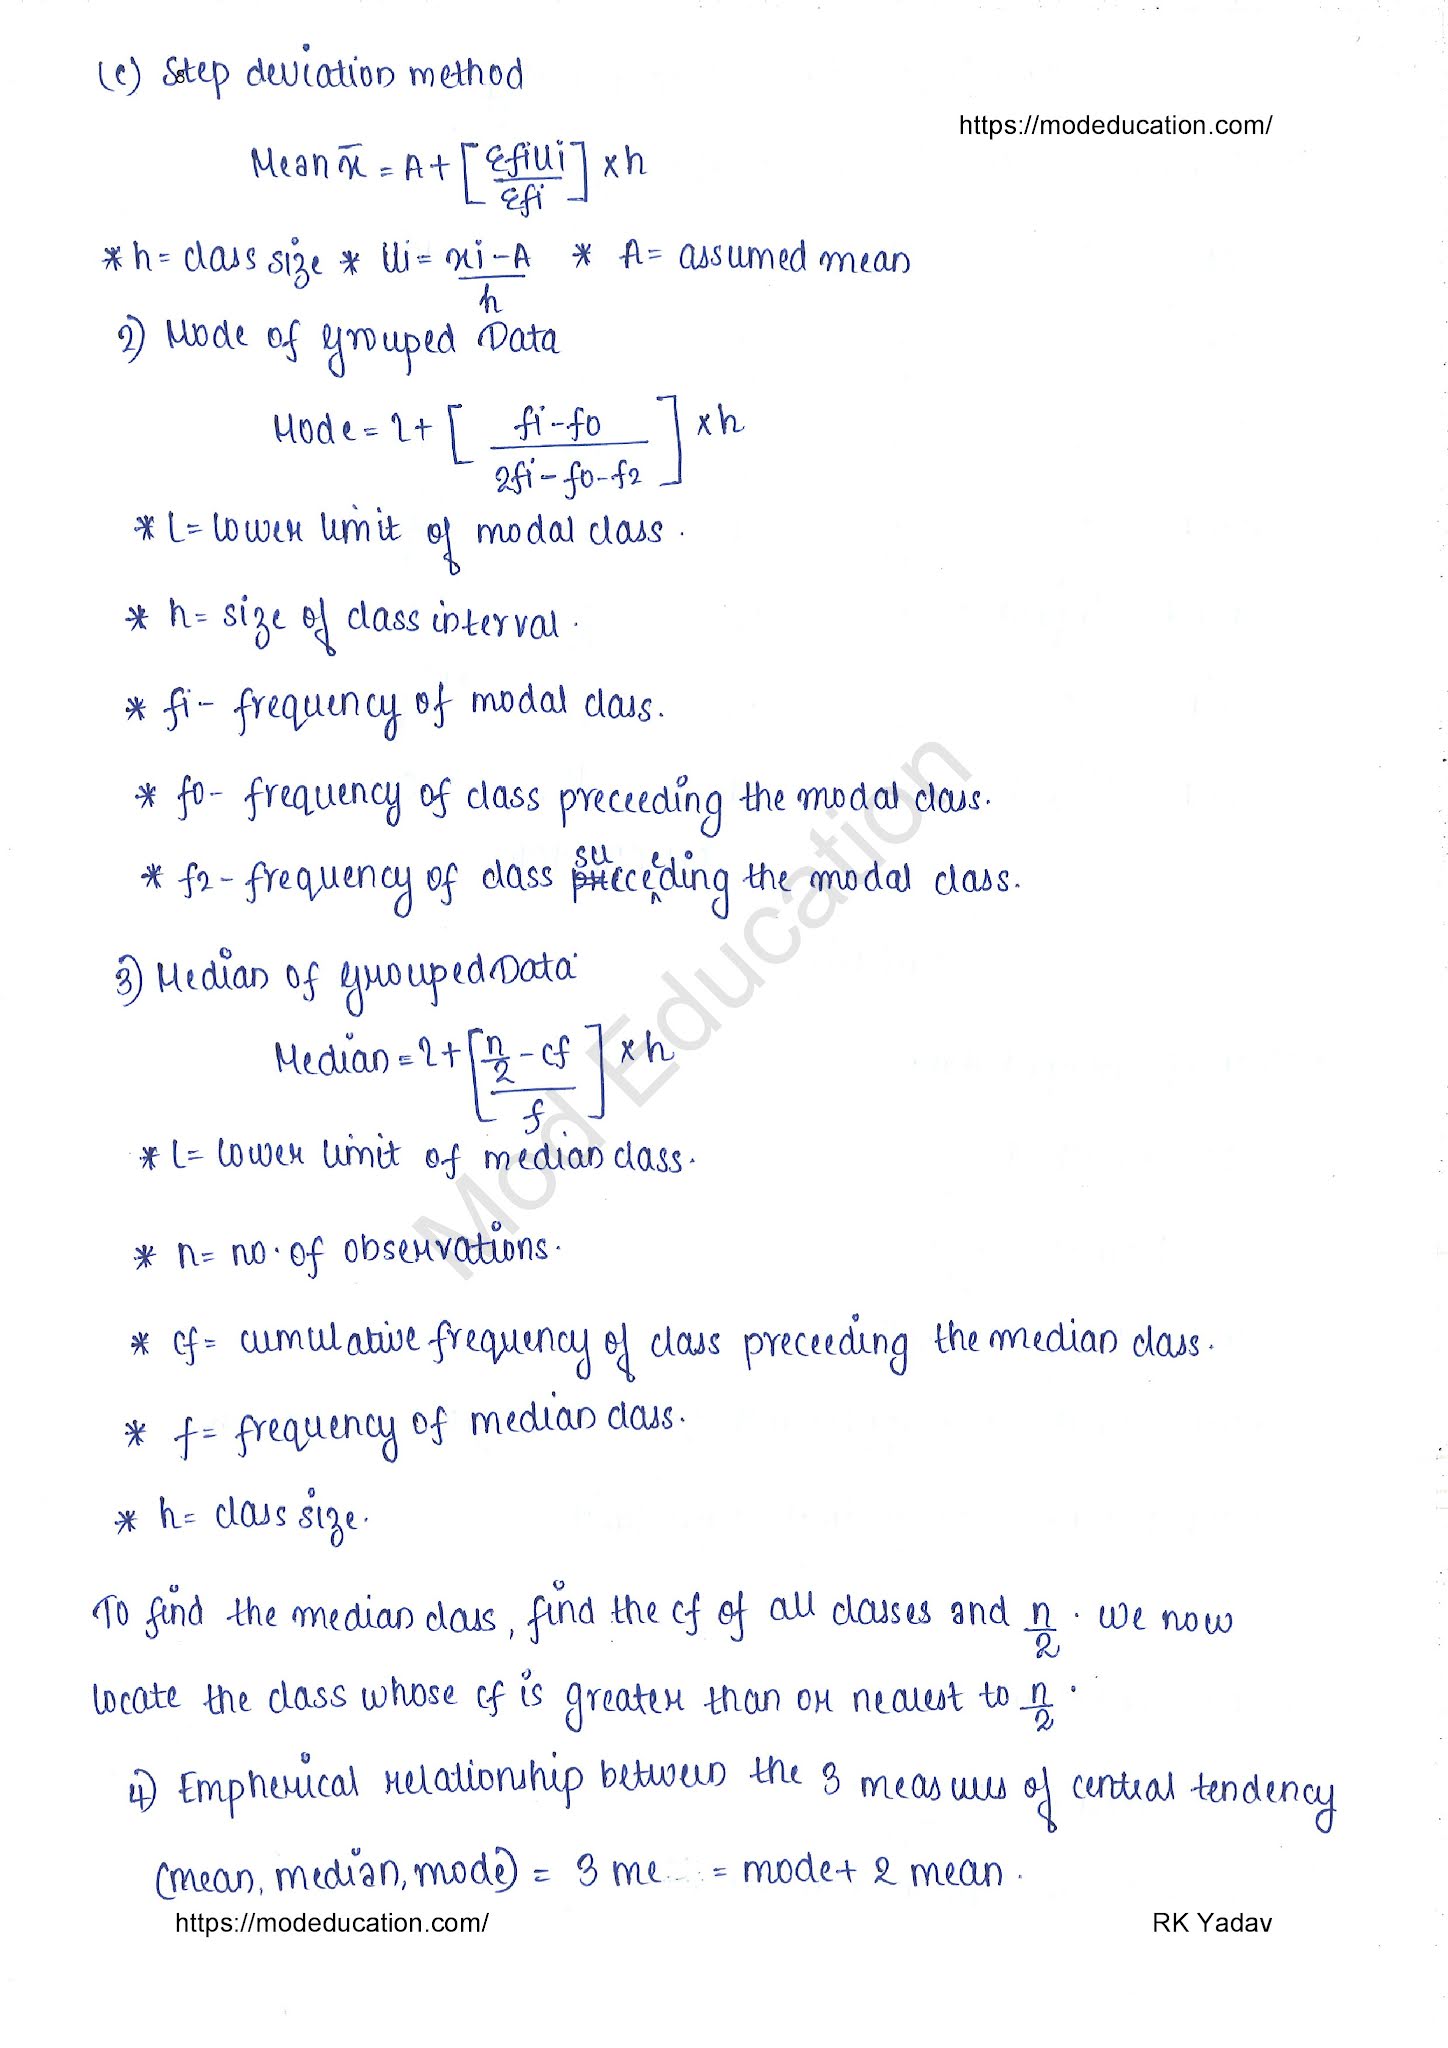 (c) Step deviation method
https://modeducation.com/
Mean x̄ = A + [Σfiui / Σfi] × h
* h = class size * ui = xi - A / h * A = assumed mean
2) Mode of grouped Data
Mode = l + [fi - f0 / 2fi - f0 - f2] × h
* l = lower limit of modal class.
* h = size of class interval.
* fi - frequency of modal class.
* f0 - frequency of class preceeding the modal class.
* f2 - frequency of class succeeding the modal class.
3) Median of grouped Data
Median = l + [n/2 - cf / f] × h
* l = lower limit of median class.
* n = no. of observations.
* cf = cumulative frequency of class preceeding the median class.
* f = frequency of median class.
* h = class size.
To find the median class, find the cf of all classes and n/2. We now
locate the class whose cf is greater than or nearest to n/2.
4) Empherical relationship between the 3 measures of central tendency
(mean, median, mode) = 3 me = mode + 2 mean.
https://modeducation.com/
RK Yadav
Mod Education